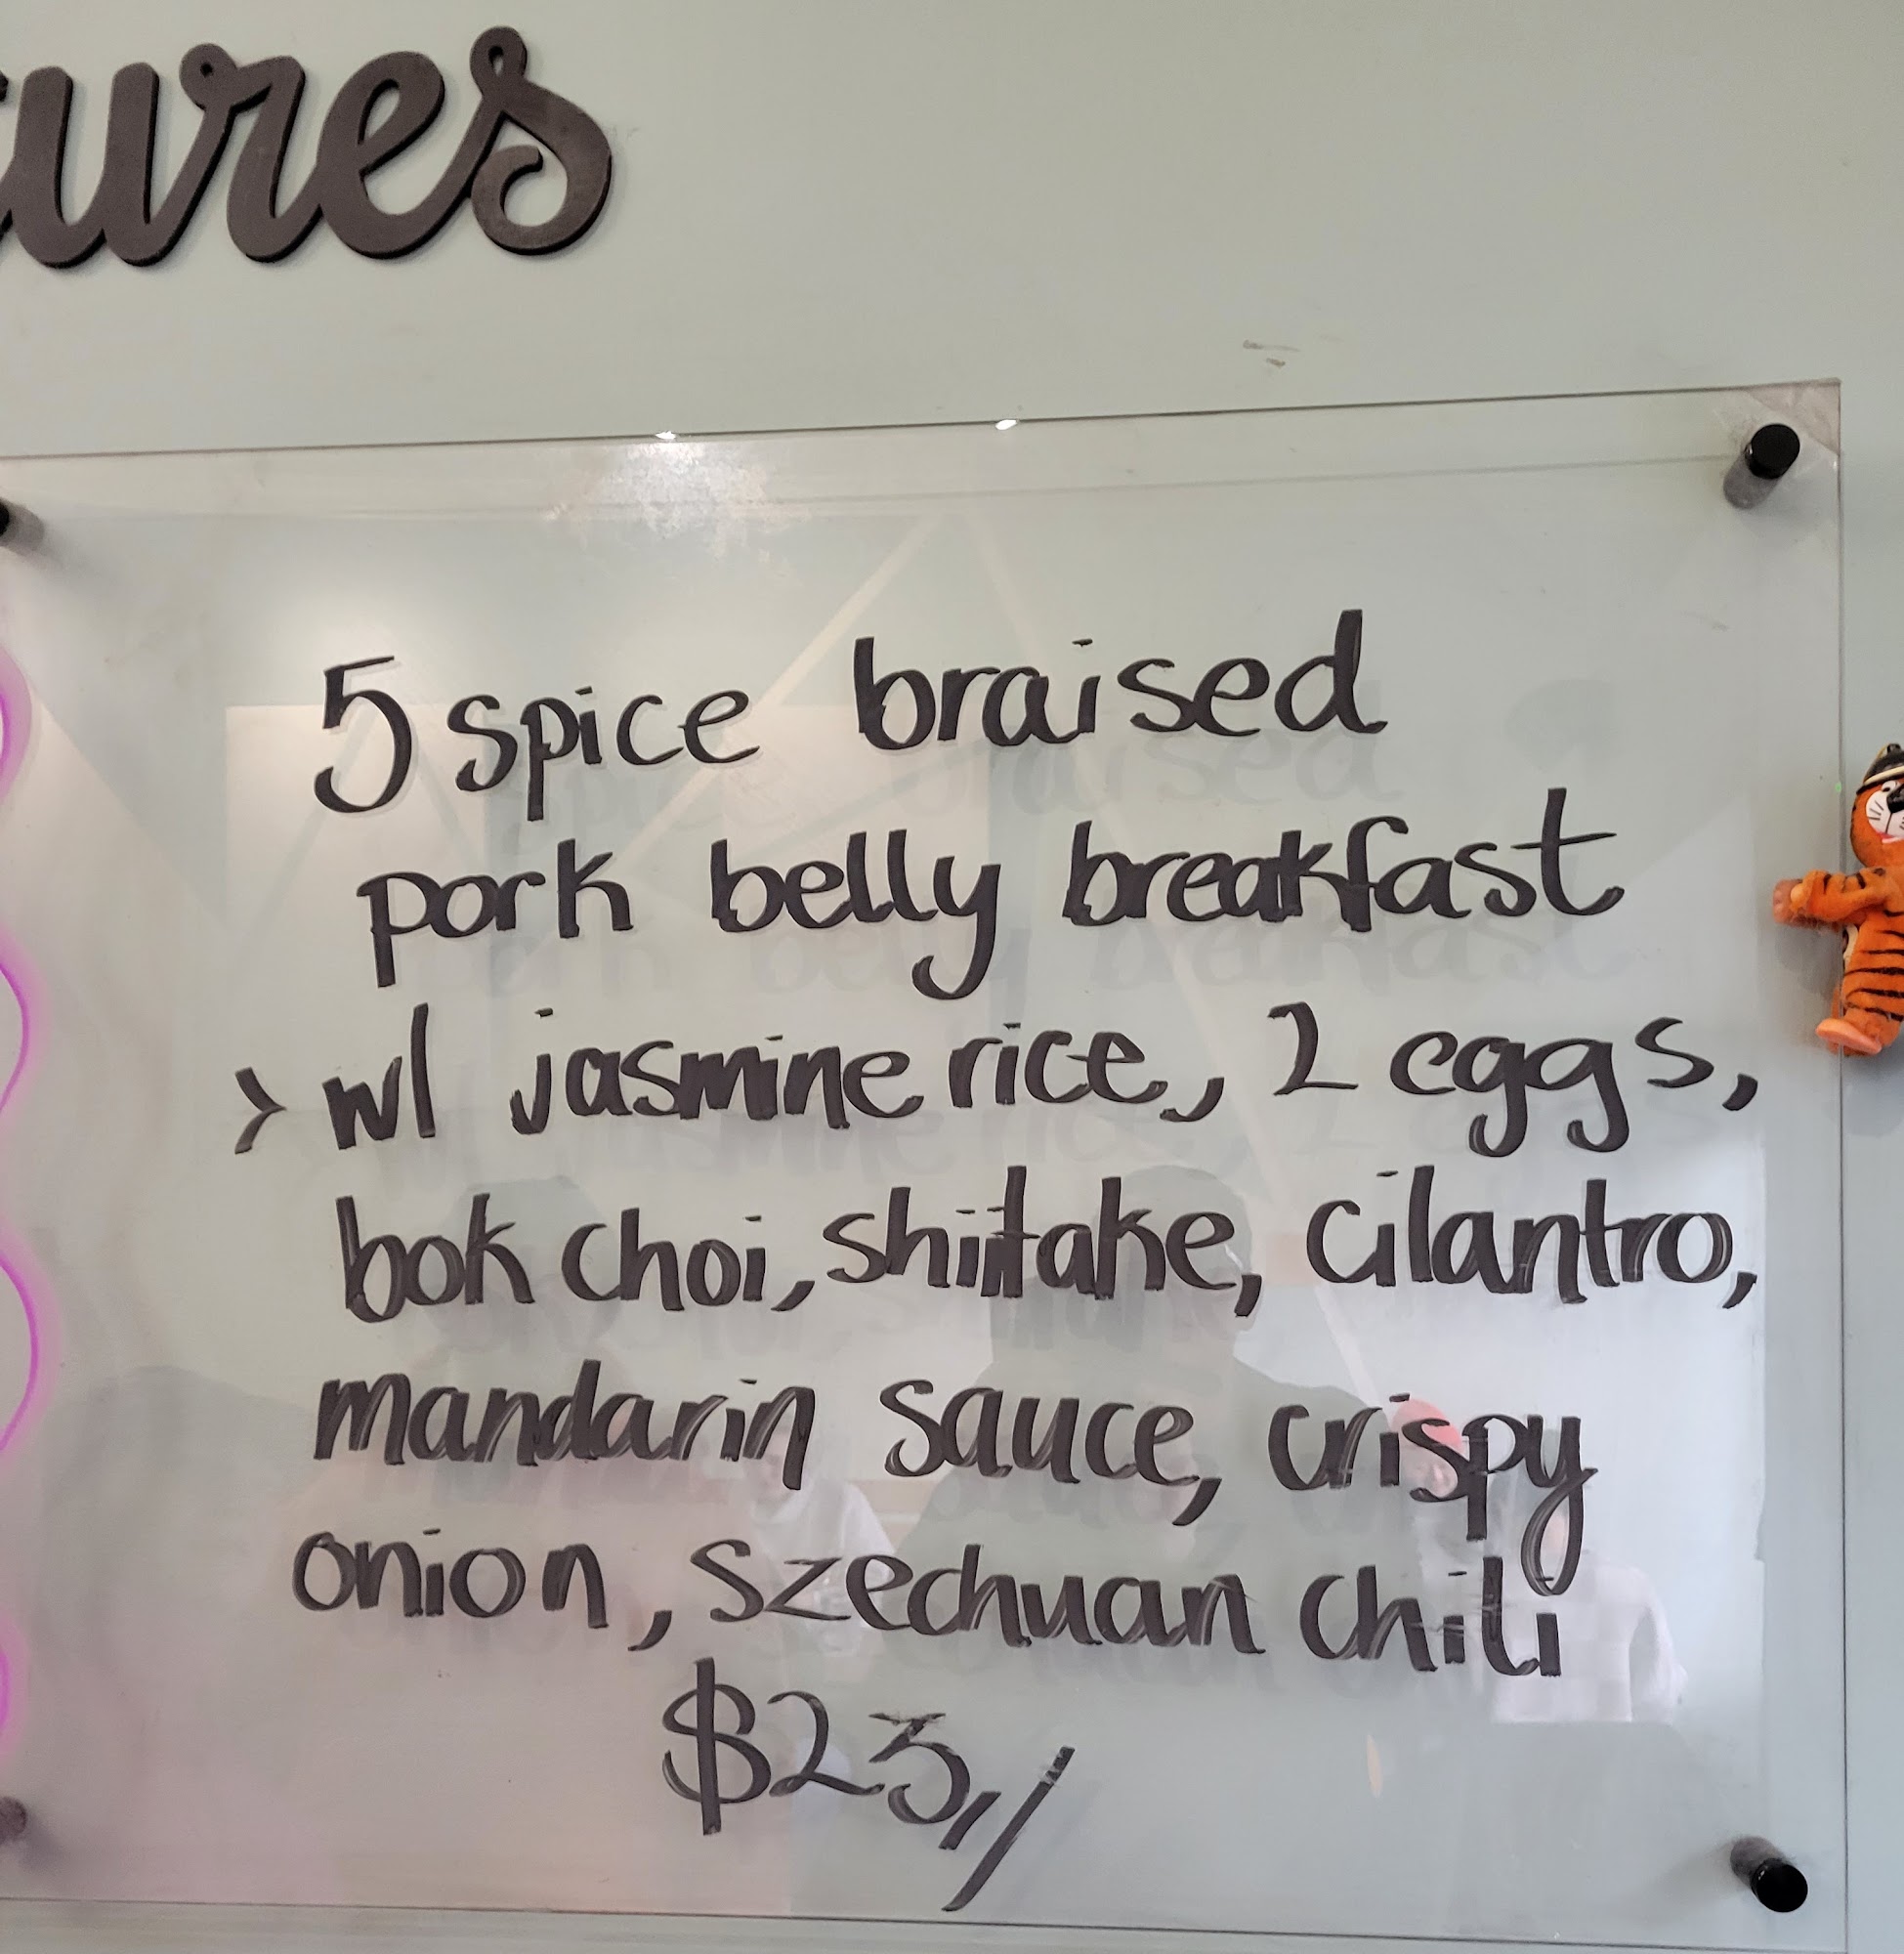 tures
5 spice braised
pork belly breakfast
> w/ jasmine rice, 2 eggs,
bok choi, shiitake, cilantro,
mandarin sauce, crispy
onion, szechuan chili
$23,/